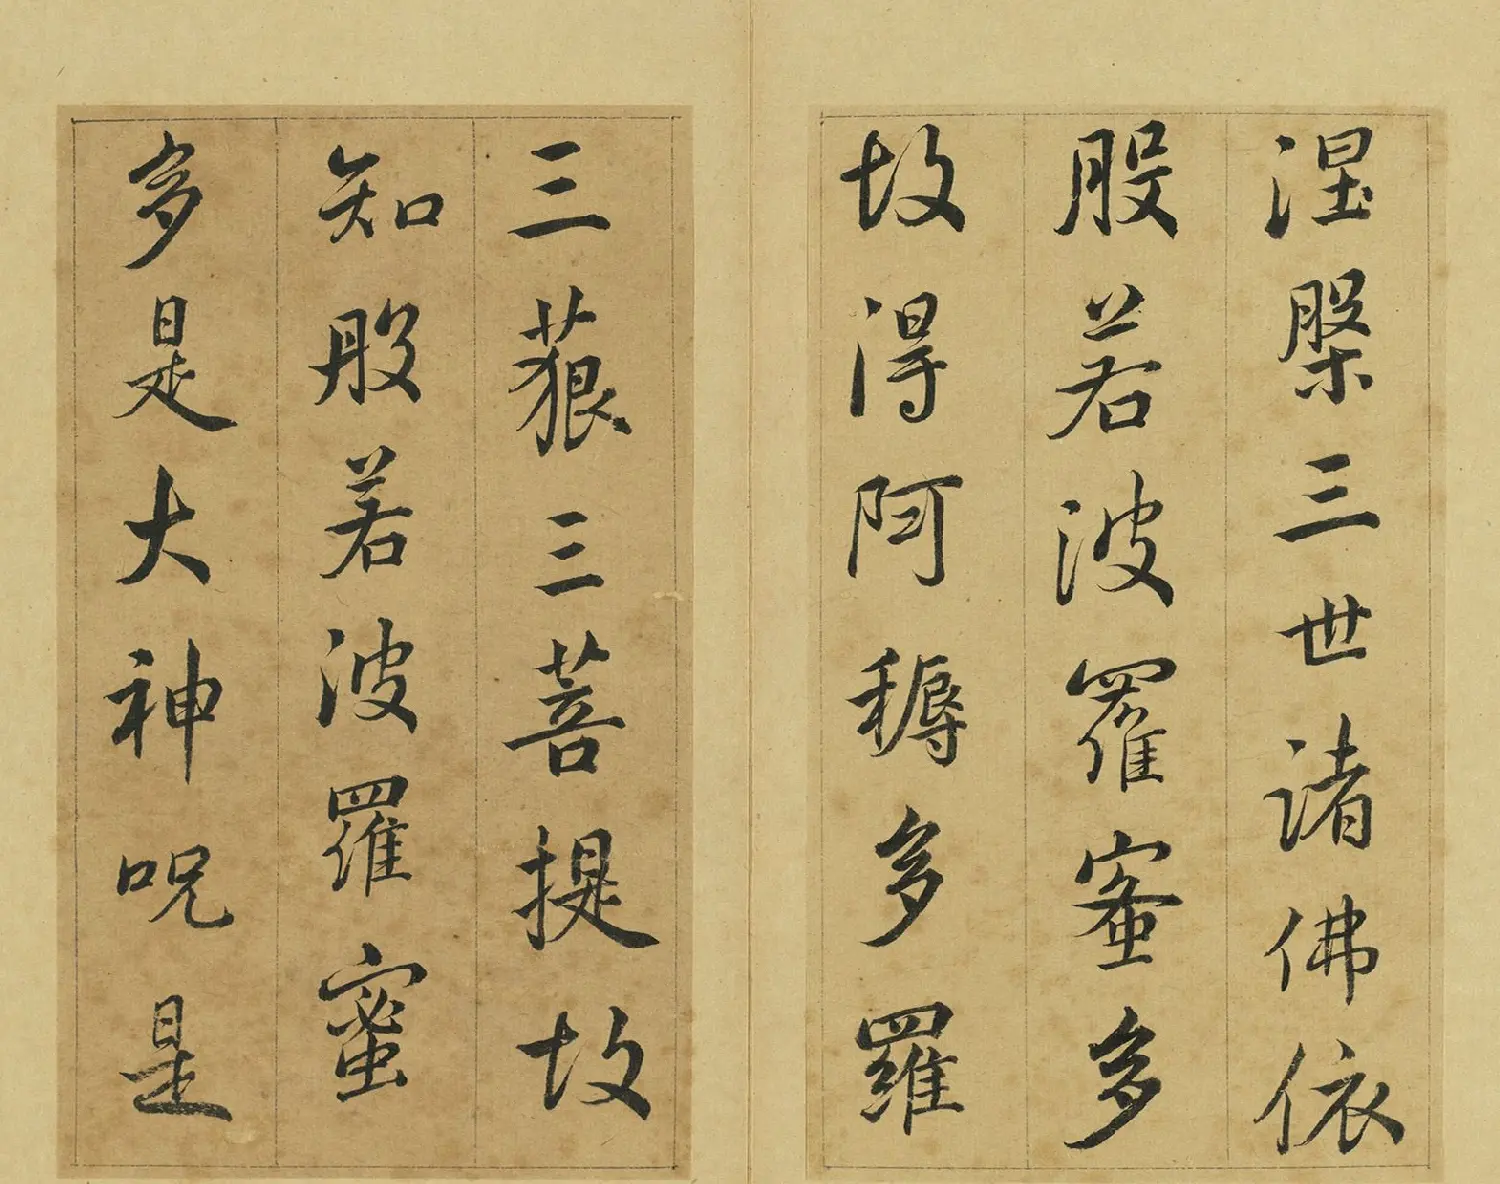 涅槃三世諸佛依
般若波羅蜜多
故得阿耨多羅
三藐三菩提故
知般若波羅蜜
多是大神呪是